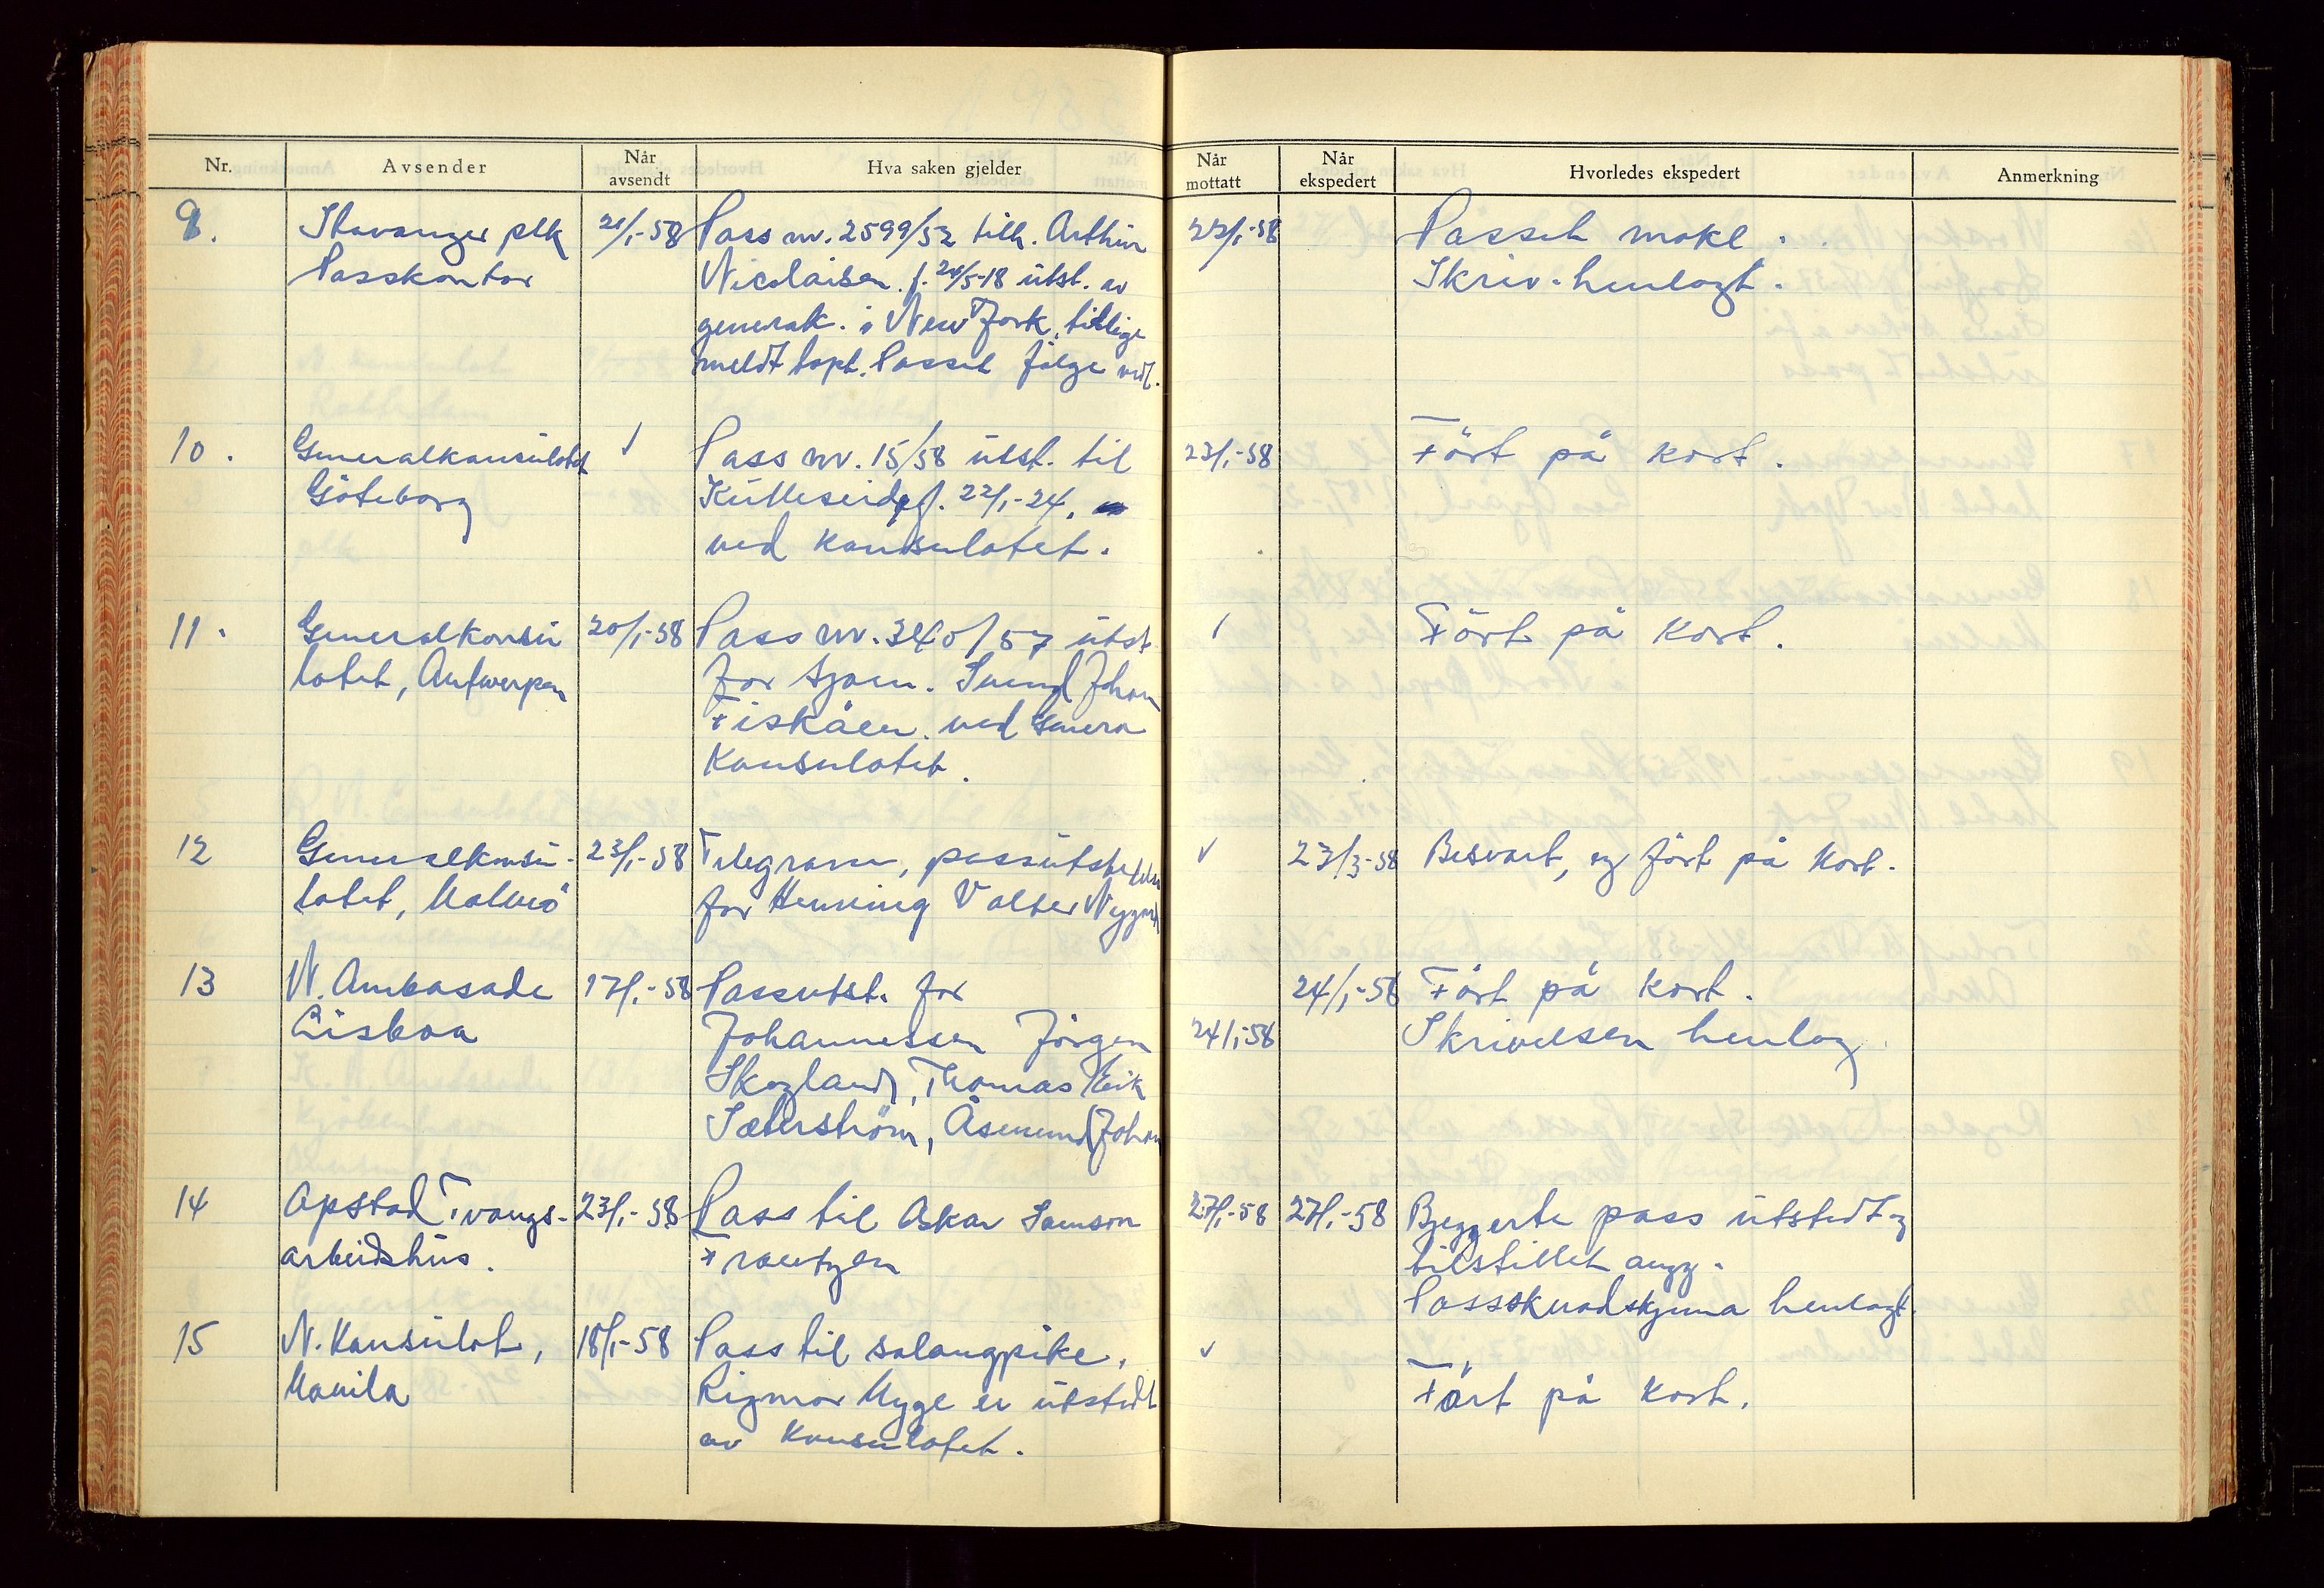 Nr. Avsender Når avsendt Hva saken gjelder Når mottatt Når ekspedert Hvorledes ekspedert Anmerkning
9. Stavanger plk 21/1-58 Pass nr. 2599/52 tilh. Arthur 22/1-58 Passet makl.
Passkontor Nicolaisen f. 24/5-18 utst. av Skriv. henlagt.
generalk. i New York, tidlige
meldt tapt. Passet følge vedl.
10. Generalkonsulatet √ Pass nr. 15/58 utst. til 23/1-58 Ført på kort.
Göteborg Kulleseid, f. 22/1-24.
ved konsulatet.
11. Generalkonsu 20/1-58 Pass nr. 340/57 utst √ Ført på kort.
latet, Antwerpen for sjøm. Svend Johan
Fiskåen. ved genera
Konsulatet.
12 Generalkonsu- 23/1-58 Telegram, passutstedelse √ 23/3-58 Besvart, og ført på kort.
latet, Malmö for Henning Valter Nygård
13 N. Ambasade 17/1-58 Passutst. for 24/1-58 Ført på kort.
Lisboa Johannessen Jörgen 24/1-58 Skrivelsen henlag
Skogland, Thomas Eik
Sæterström, Åsmund Johan
14 Opstad Tvangs- 23/1-58 Pass til Oskar Samson 27/1-58 27/1-58 Begjærte pass utstedt og
arbeidshus. Frantzen tilstillet angj.
Passsknadskjema henlagt
15 N. Konsulat, 18/1-58 Pass til salongpike, √
Manila Rigmor Myge er utstedt Ført på kort.
av Konsulatet.